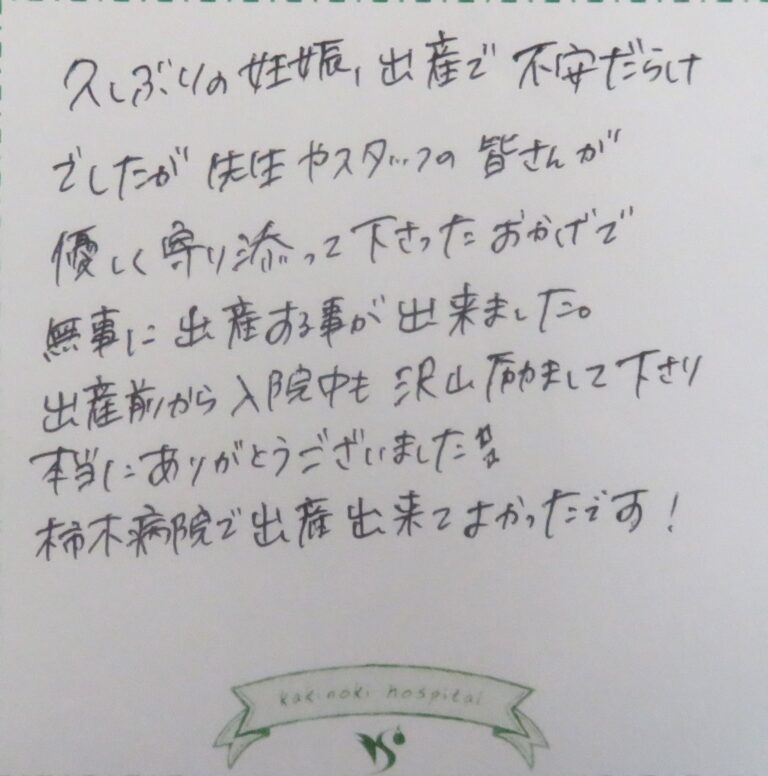 久しぶりの妊娠,出産で不安だらけ
でしたが先生やスタッフの皆さんが
優しく寄り添って下さったおかげで
無事に出産する事が出来ました。
出産前から入院中も沢山励まして下さり
本当にありがとうございました!!
柿木病院で出産出来てよかったです!
kakinoki hospital